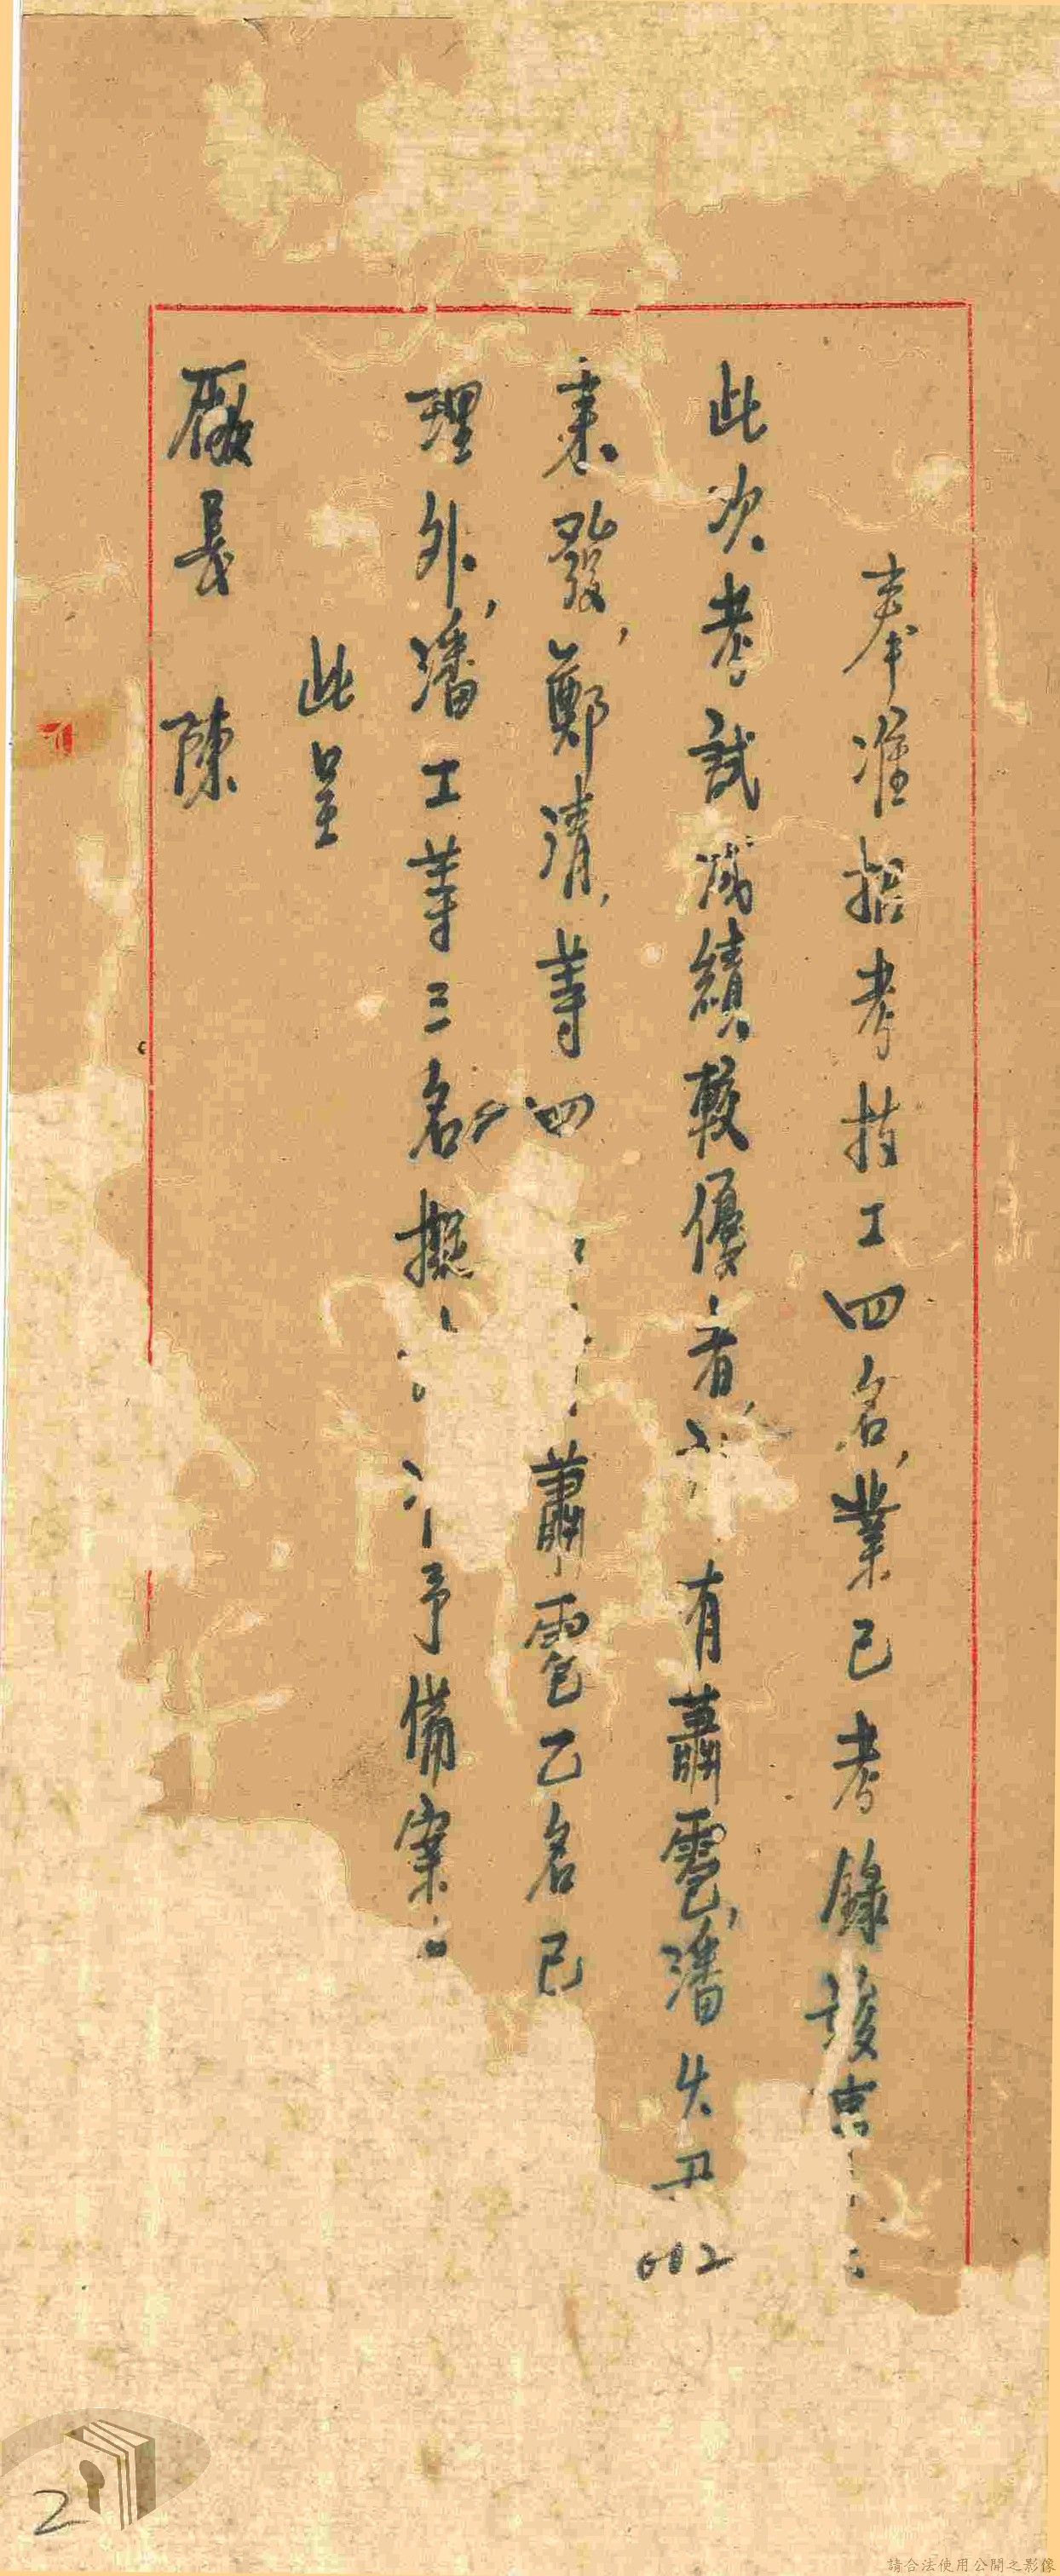 奉准招考技工四名，業已考錄竣
此次考試成績較優者，有蕭雹，潘
來發，鄭清，等四
蕭雹乙名已
理外，潘工等三名擬
予備案
此呈
廠長 陳
012
2
請合法使用公開之影像